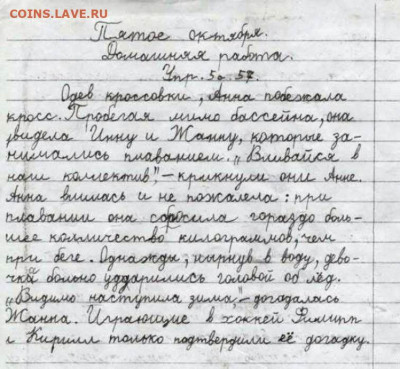 COINS.LAVE.RU
Пятое октября.
Домашняя работа.
Упр. 5а 57.
Одев кроссовки, Анна побежала
кросс. Пробегая мимо бассейна, она
увидела Инну и Жанну, которые за-
нимались плаванием. „Вливайся в
наш коллектив", - крикнули они Анне.
Анна влилась и не пожалела: при
плавании она сбросила гораздо боль-
шее колличество килограммов, чем
при беге. Однажды, нырнув в воду, дево-
чка больно ударились головой об лёд.
„Видимо наступила зима", - догадалась
Жанна. Играющие в хоккей Филипп
и Кирилл только подтвердили её догадку.